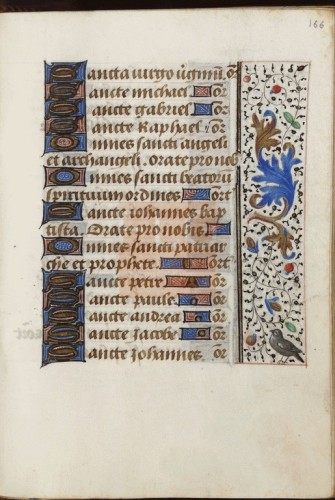 166
Sancta virgo v̄gınū. or̄
Sancte michael or̄
Sancte gabriel or̄
Sancte Raphael or̄
Omnes sancti angeli
et archangeli. orate pro nob
Omnes sancti beatorū
spirituum ordines ort
Sancte iohannes bap
tista. Orate pro nobis
Omnes sancti patriar
che et prophete. ort
Sancte petre or
Sancte paule. or
Sancte andrea or̄
Sancte Jacobe or̄
Sancte Johannes or̄